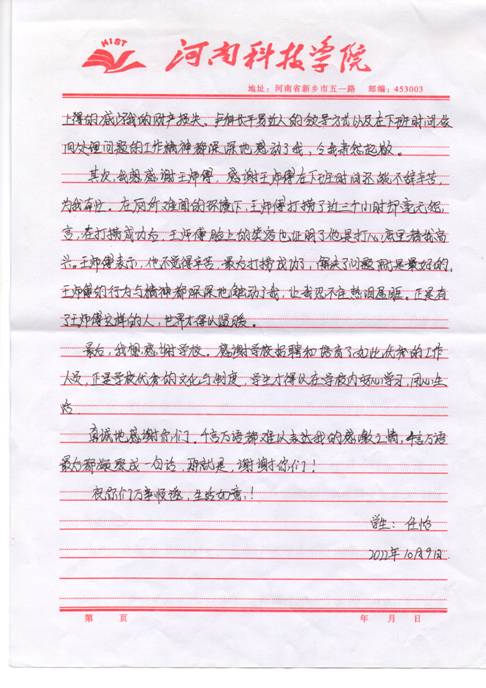 HIST
河南科技学院
地址：河南省新乡市五一路 邮编：453003
上得的减少我的财产损失。卓科长平易近人的领导方式以及在下班时间依
旧处理问题的工作精神都深深地感动了我，令我肃然起敬。
其次，我想感谢王师傅，感谢王师傅在下班时间还能不辞辛苦，
为我奔忙。在厕所难闻的环境下，王师傅打捞了近三个小时却毫无怨
言，在打捞成功后，王师傅脸上的笑容也证明了他是打心底里替我高
兴。王师傅表示，他不觉得辛苦，最后打捞成功了，解决了问题就是最好的。
王师傅的行为与精神都深深地触动了我，让我忍不住热泪盈眶。正是有
了王师傅这样的人，世界才得以温暖。
最后，我想感谢学校。感谢学校招聘和培育了如此优秀的工作
人员，正是学校优秀的文化与制度，学生才得以在学校内安心学习，开心生
活
真诚地感谢你们，千言万语都难以表达我的感激之情，千言万语
最后都凝聚成一句话，那就是，谢谢你们！
祝你们万事顺遂，生活如意！
学生：任怡
2022年10月9日
第 页 年 月 日